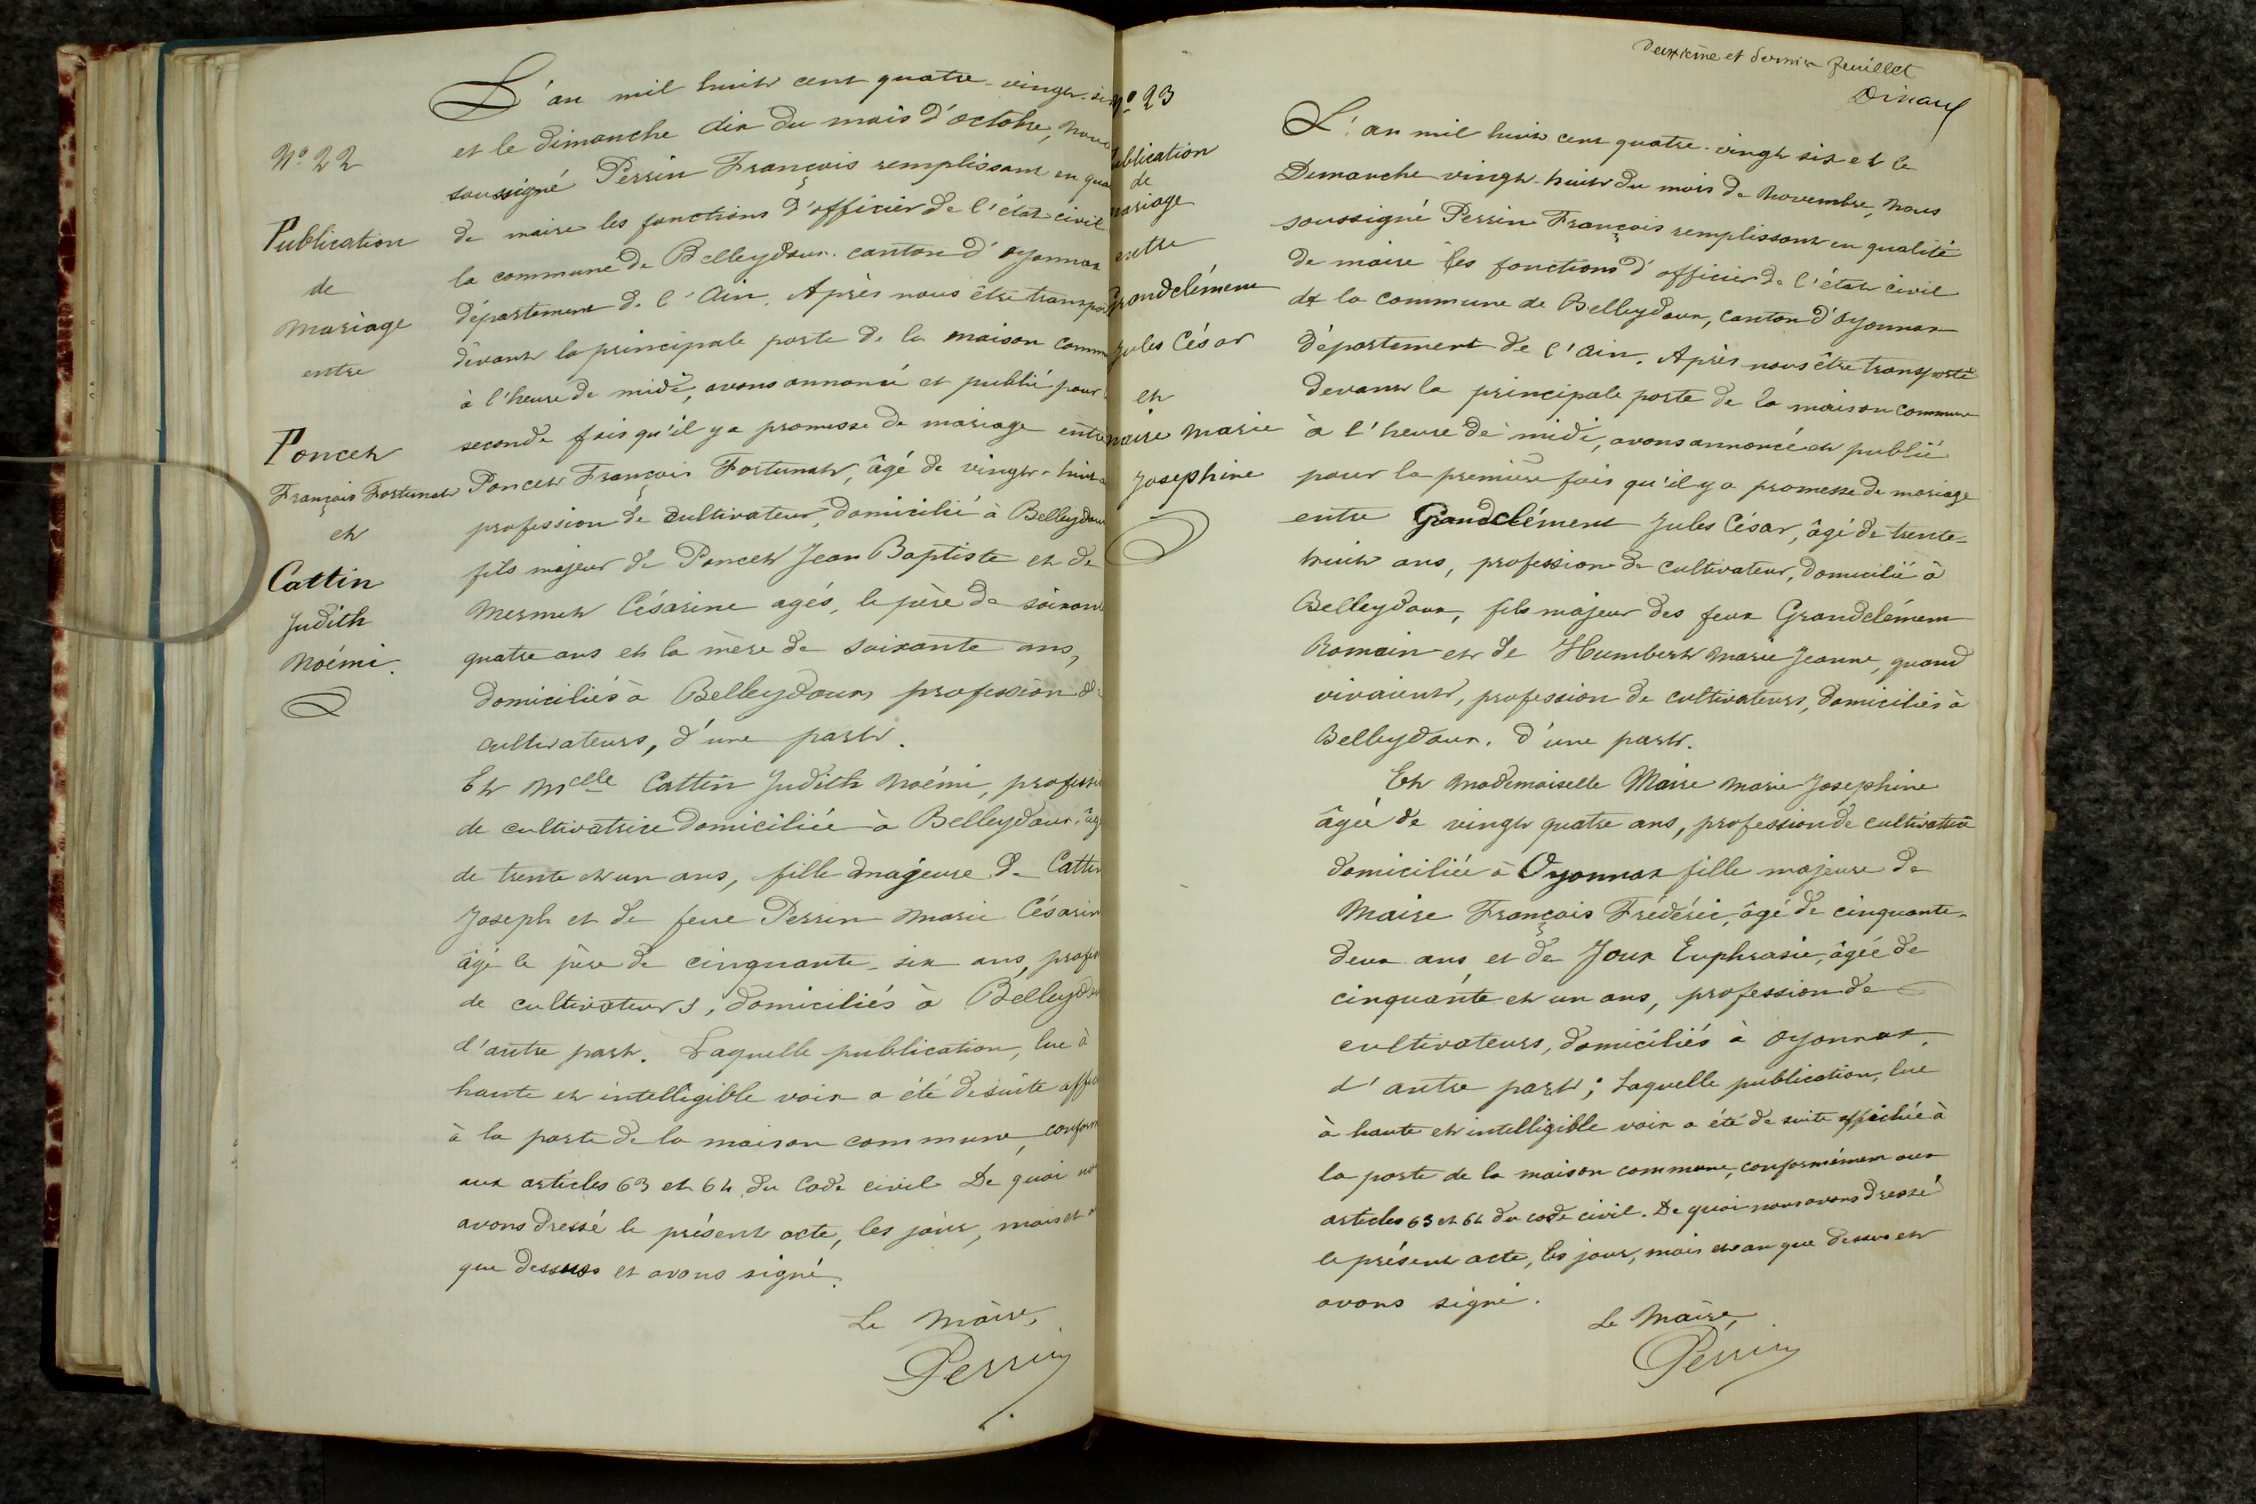 N° 22
Publication
de
mariage
entre
Poncet
François Fortunat
et
Cattin
Judith
Noémi.
L'an mil huit cent quatre-vingt-six
et le dimanche dix du mois d'octobre, nous
soussigné Perrin François remplissant en qua
de maire les fonctions d'officier de l'état civil
la commune de Belleydoux canton d'Oyonnax
département de l'Ain. Après nous être transpor
devant la principale porte de la maison comm
à l'heure de midi, avons annoncé et publié pour
seconde fois qu'il y a promesse de mariage entre
Poncet François Fortunat, âgé de vingt-huit
profession de cultivateur, domicilié à Belleydoux
fils majeur de Poncet Jean Baptiste et de
Mermet Césarine agés, le père de soixante
quatre ans et la mère de soixante ans,
domiciliés à Belleydoux profession de
cultivateurs, d'une part.
Et Melle Cattin Judith Noémi, professi
de cultivatrice domiciliée à Belleydoux, âg
de trente et un ans, fille majeure de Cattin
Joseph et de feue Perrin Marie Césarin
âgé le père de cinquante-six ans, profes
de cultivateurs, domiciliés à Belleydou
d'autre part. Laquelle publication, lue à
haute et intelligible voix a été de suite affic
à la porte de la maison commune, conform
aux articles 63 et 64 du Code civil. De quoi nou
avons dressé le présent acte, les jour, mois et a
que dessus et avons signé.
Le Maire,
Perrin
Deuxième et dernier feuillet
N° 23
ublication
de
mariage
entre
Grandclément
Jules César
et
Maire Marie
Josephine
L'an mil huit cent quatre-vingt six et le
Dimanche vingt-huit du mois de Novembre, Nous
soussigné Perrin François remplissant en qualité
de maire les fonctions d'officier de l'état civil
de la commune de Belleydoux, canton d'Oyonnax
département de l'Ain. Après nous être transporté
devant la principale porte de la maison commune
à l'heure de midi, avons annoncé et publié
pour la première fois qu'il y a promesse de mariage
entre Grandclément Jules César, âgé de trente-
huit ans, profession de cultivateur, domicilié à
Belleydoux, fils majeur des feux Grandclément
Romain et de Humbert Marie Jeanne, quand
vivaient, profession de cultivateurs, domiciliés à
Belleydoux. d'une part.
Et Mademoiselle Maire Marie Josephine
âgée de vingt quatre ans, profession de cultivatrice
domiciliée à Oyonnax fille majeure de
Maire François Frédéric, âgé de cinquante-
deux ans et de Joux Euphrasie, âgée de
cinquante et un ans, profession de
cultivateurs, domiciliés à Oyonnax,
d'autre part; Laquelle publication, lue
à haute et intelligible voix a été de suite affichée à
la porte de la maison commune, conformément aux
articles 63 et 64 du code civil. De quoi nous avons dressé
le présent acte, les jour, mois et an que dessus et
avons signé.
Le Maire,
Perrin